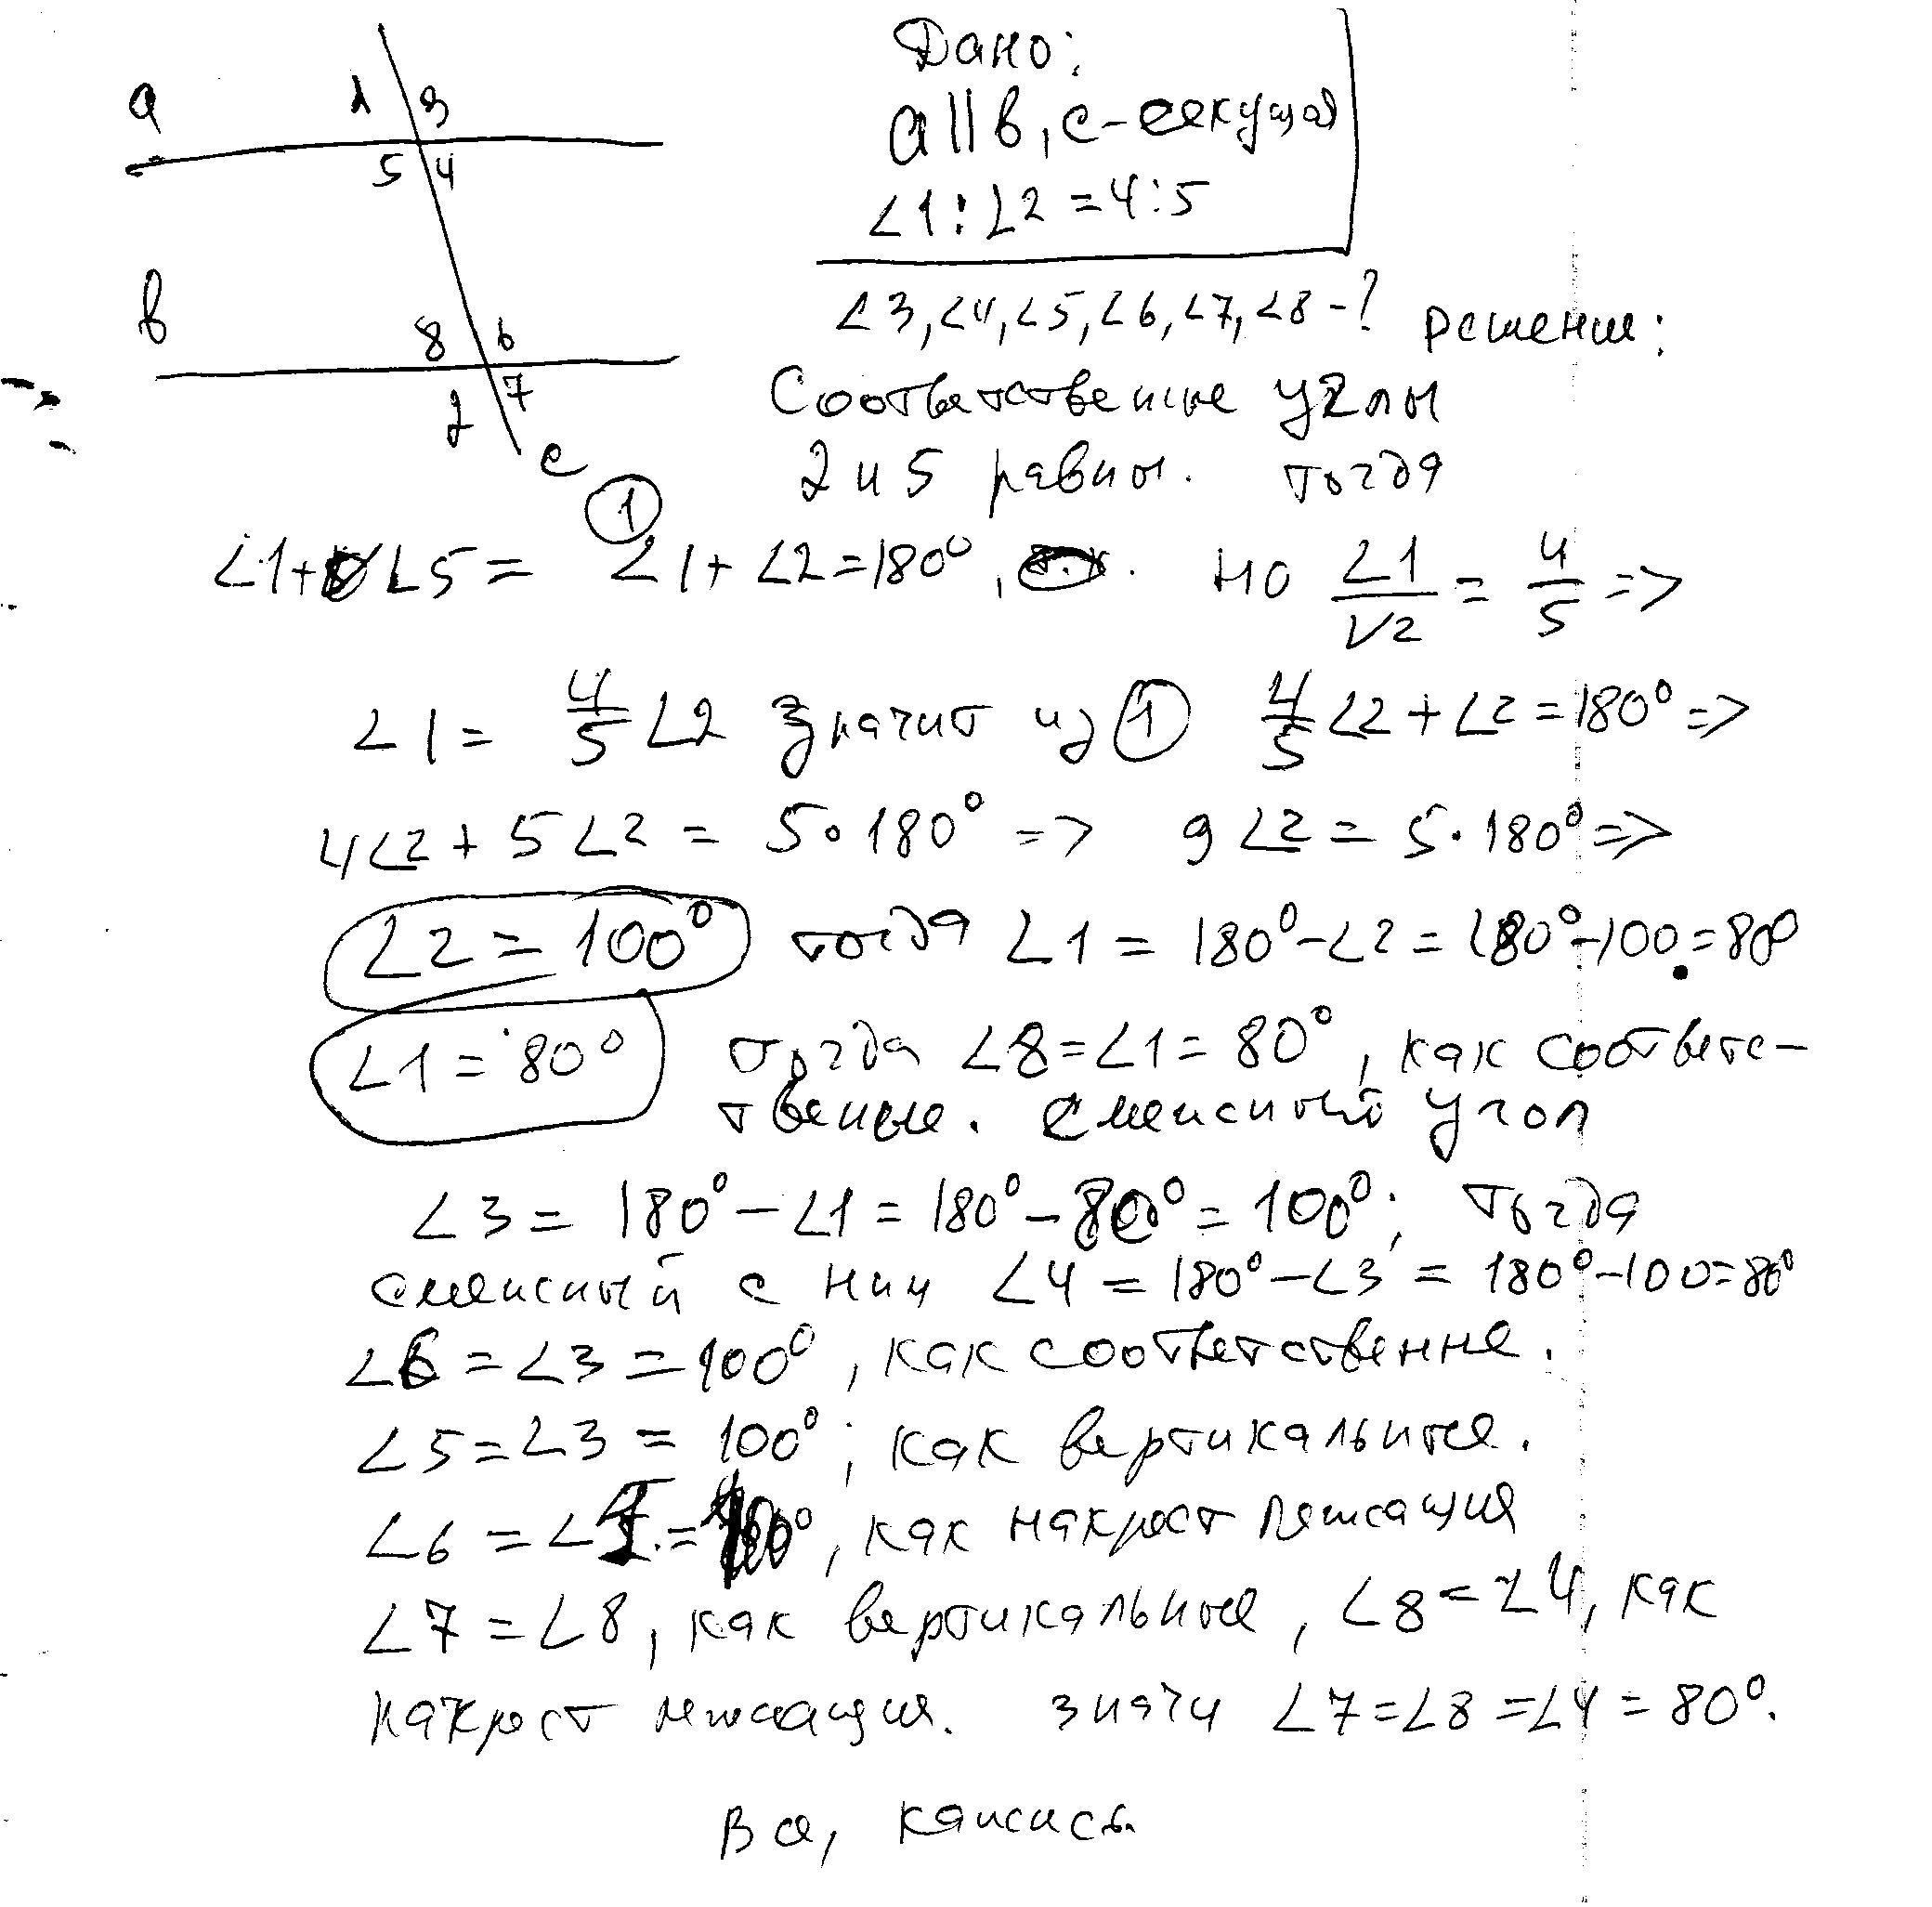 a
1 3
5 4
в
8 6
2 7
c
Дано:
a||в, c-секущая
∠1:∠2=4:5
∠3,∠4,∠5,∠6,∠7,∠8-? решение:
Соответственные углы
2 и 5 равны. тогда
①
∠1+∠5= ∠1+∠2=180°, но ∠1/∠2=4/5=>
∠1=4/5∠2 значит из ① 4/5∠2+∠2=180°=>
4∠2+5∠2=5·180°=> 9∠2=5·180°=>
∠2=100° тогда ∠1=180°-∠2=180°-100=80°
∠1=80° тогда ∠8=∠1=80°, как соответс-
твенные. смежный угол
∠3=180°-∠1=180°-80°=100°; тогда
смежный с ним ∠4=180°-∠3=180°-100=80°
∠6=∠3=100°, как соответственные.
∠5=∠3=100°; как вертикальные.
∠6=∠5=100°, как накрест лежащия
∠7=∠8, как вертикальные, ∠8=∠4, как
накрест лежащия. значи ∠7=∠8=∠4=80°.
Вс, кажись